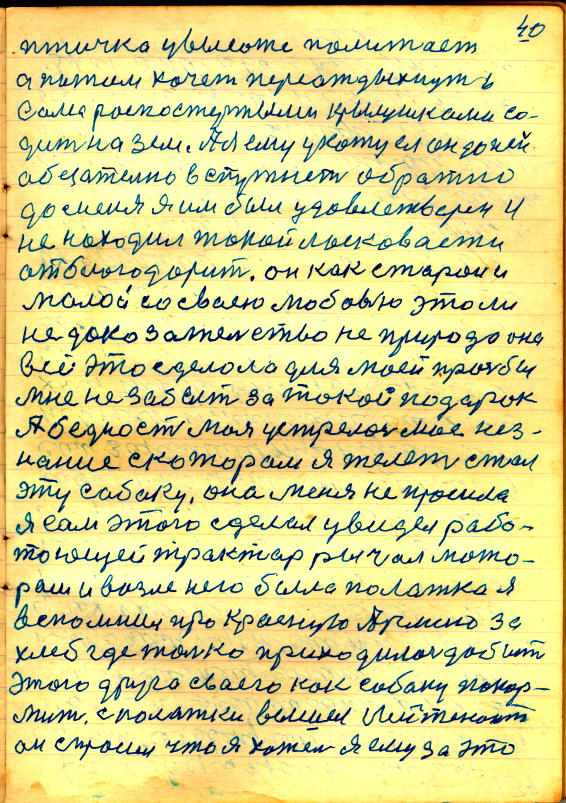 40
птичка увысоте политает
а патом хочет переатдыхнуть
Сама роспостертыми крылушками со-
дит на зем. А я ему укотуел он до ней
обезателно вступнет обратно
до меня я им был удовлетверен и
не находил такой ласковасти
атблогодорит. он как старои и
малой со сваею любовю это ли
не доказателство не природа она
всё это сделола для моей прочбы
мне не забыт за токой подарок
А бедност моя устрелоч мое нез-
нание скоторам я телет стал
эту сабаку. она меня не просила
я сам этого сделал увидел рабо-
тоющей трактар рычал мото-
рам и возле него былла полатка я
вспомнил про Красную Армию за
хлеб где толко приходилоч добыт
этого друга сваего как собаку покор-
мит. с полатки вышел Лийтенант
он спросил что я хотел я ему за это